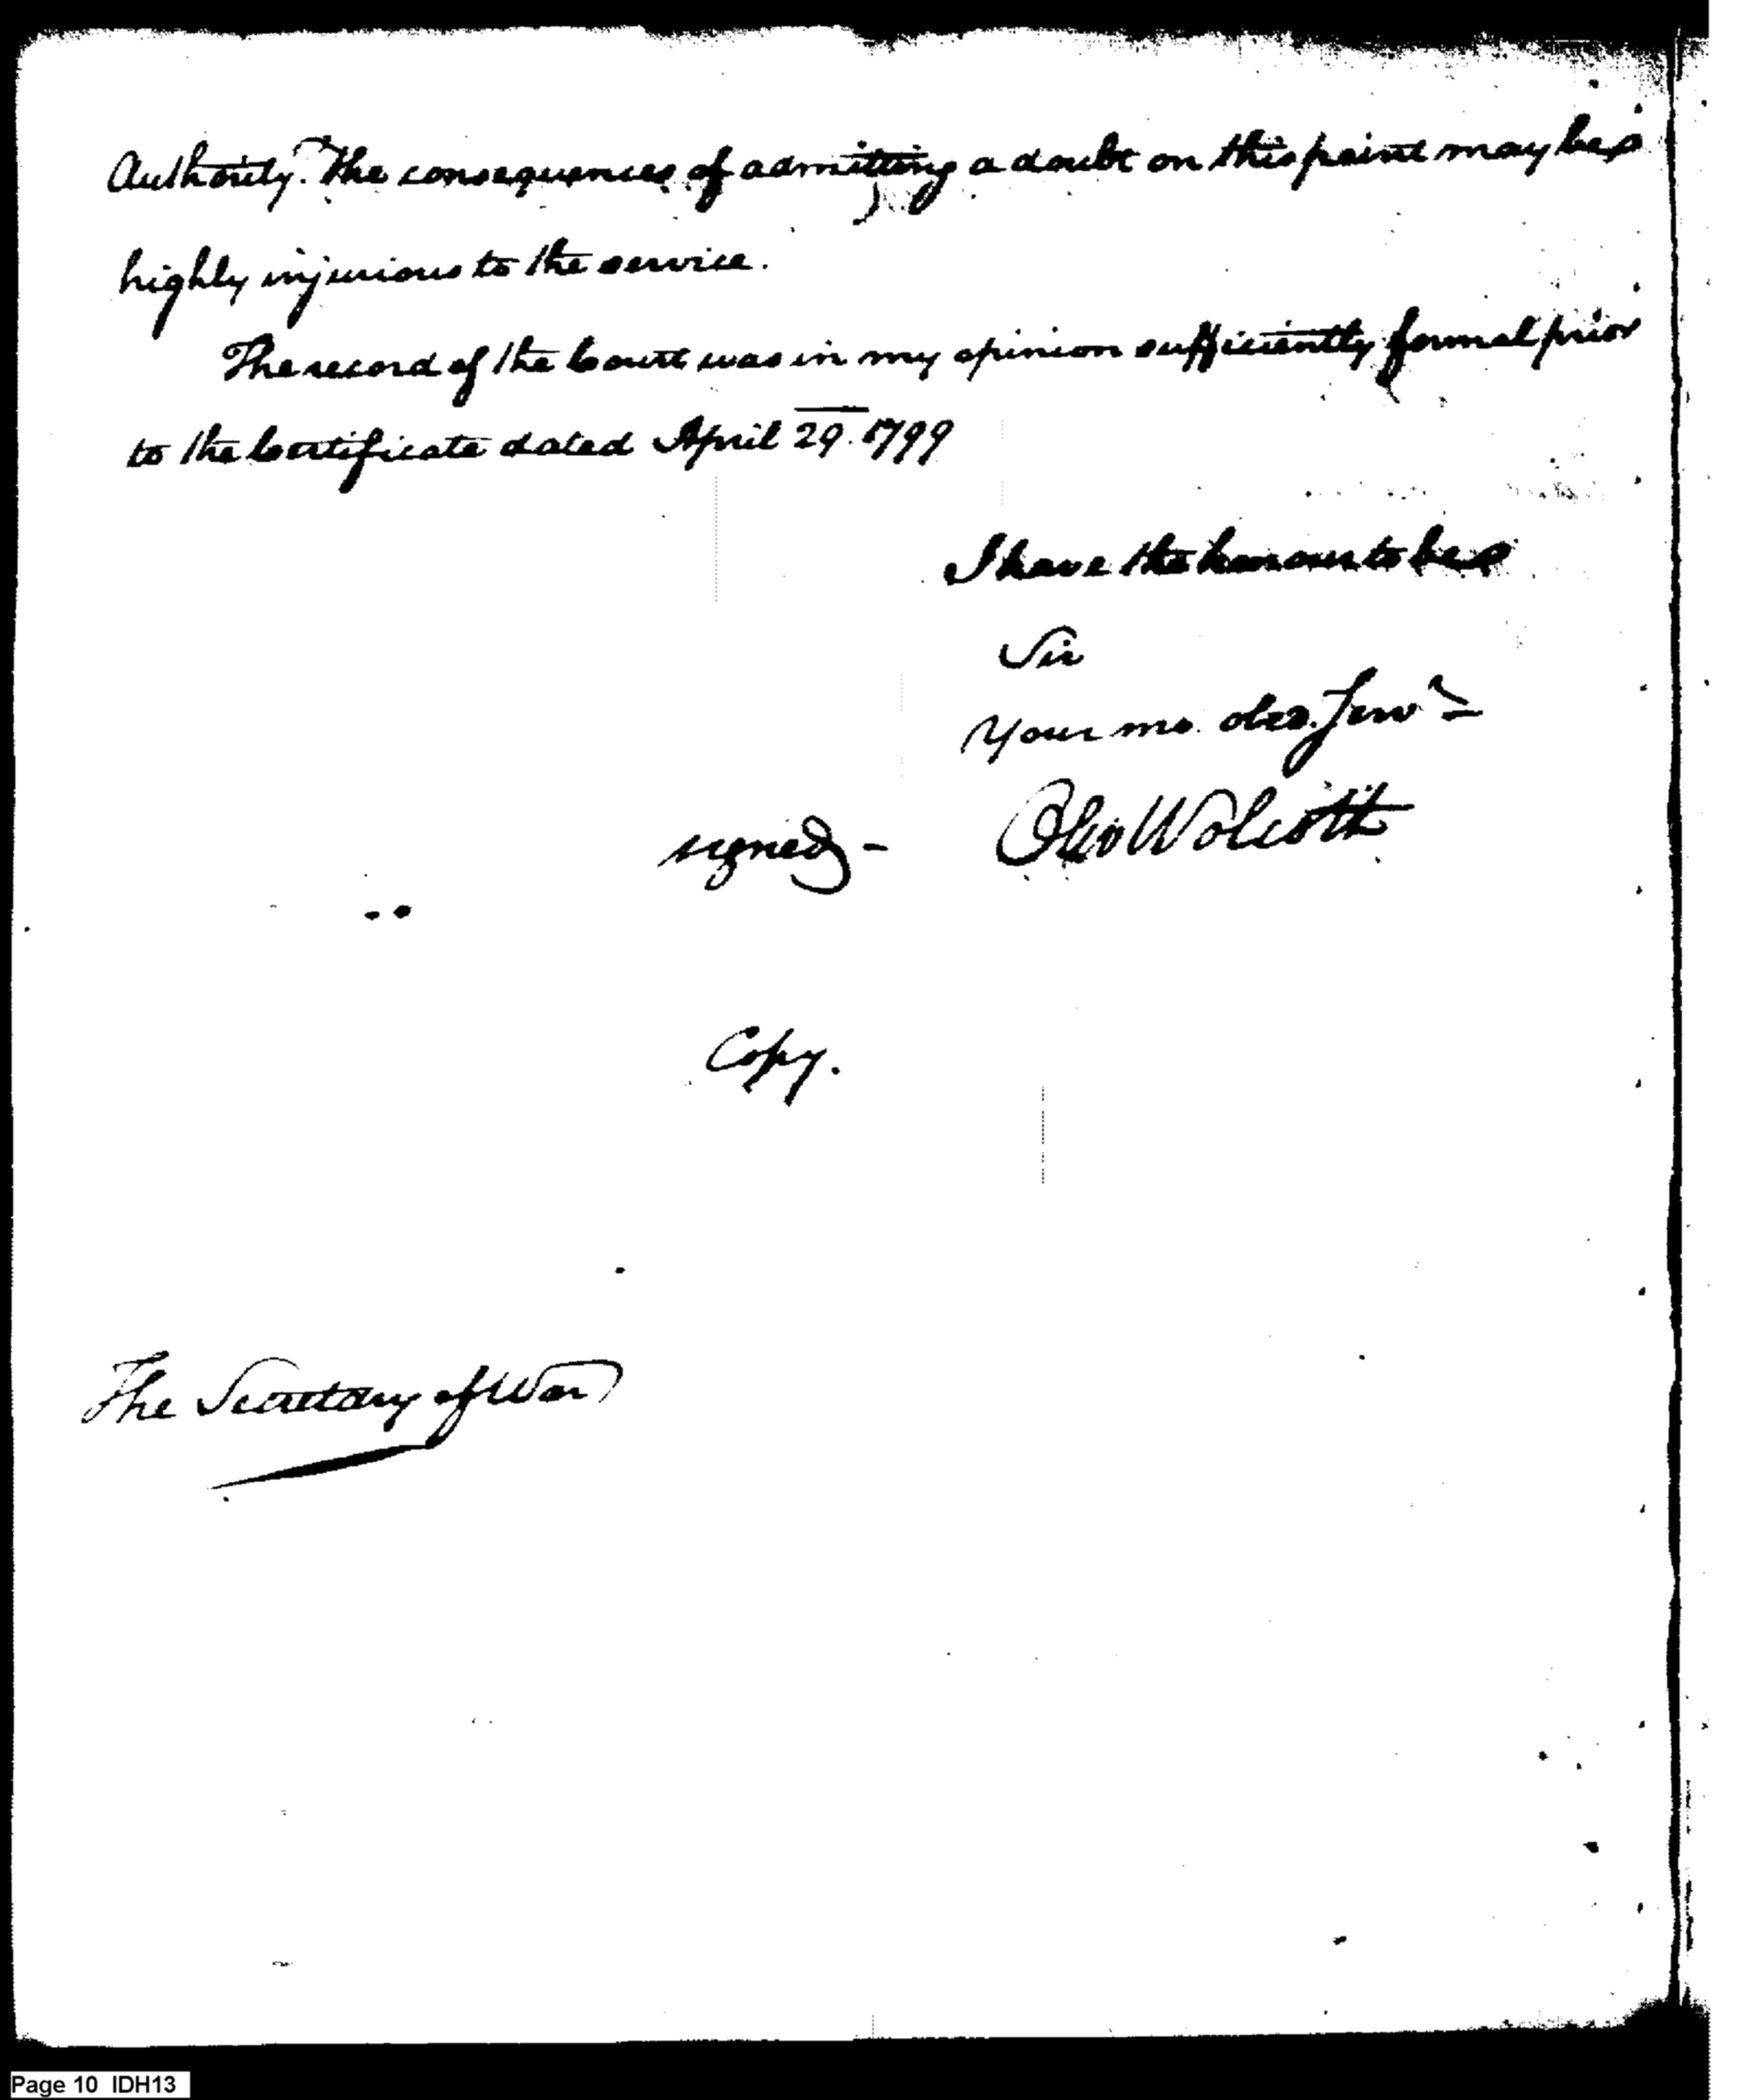 Authority. The consequences of admitting a doubt on this point may be
highly injurious to the service.
The record of the Court was in my opinion sufficiently formal prior
to the Certificate dated April 29. 1799
I have the honour to be
Sir
Your mo. obed. Servt
signed - Oliv Wolcott
Copy.
The Secretary of War
Page 10 IDH13